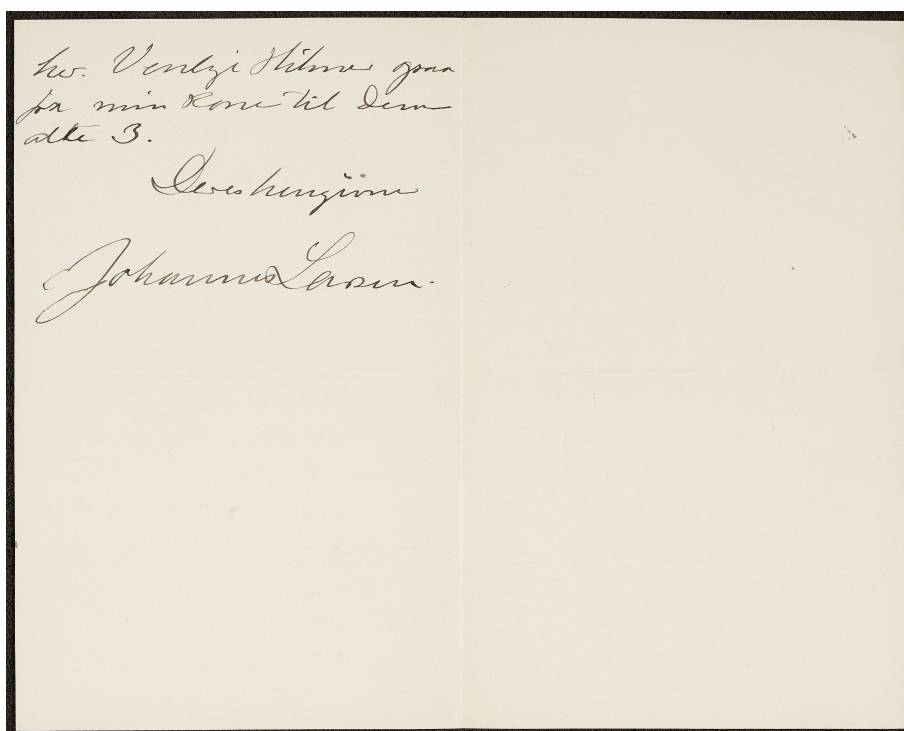 her. Venlige Hilsner ogsaa
fra min Kone til Dem
alle 3.
Deres hengivne
Johannes Larsen.